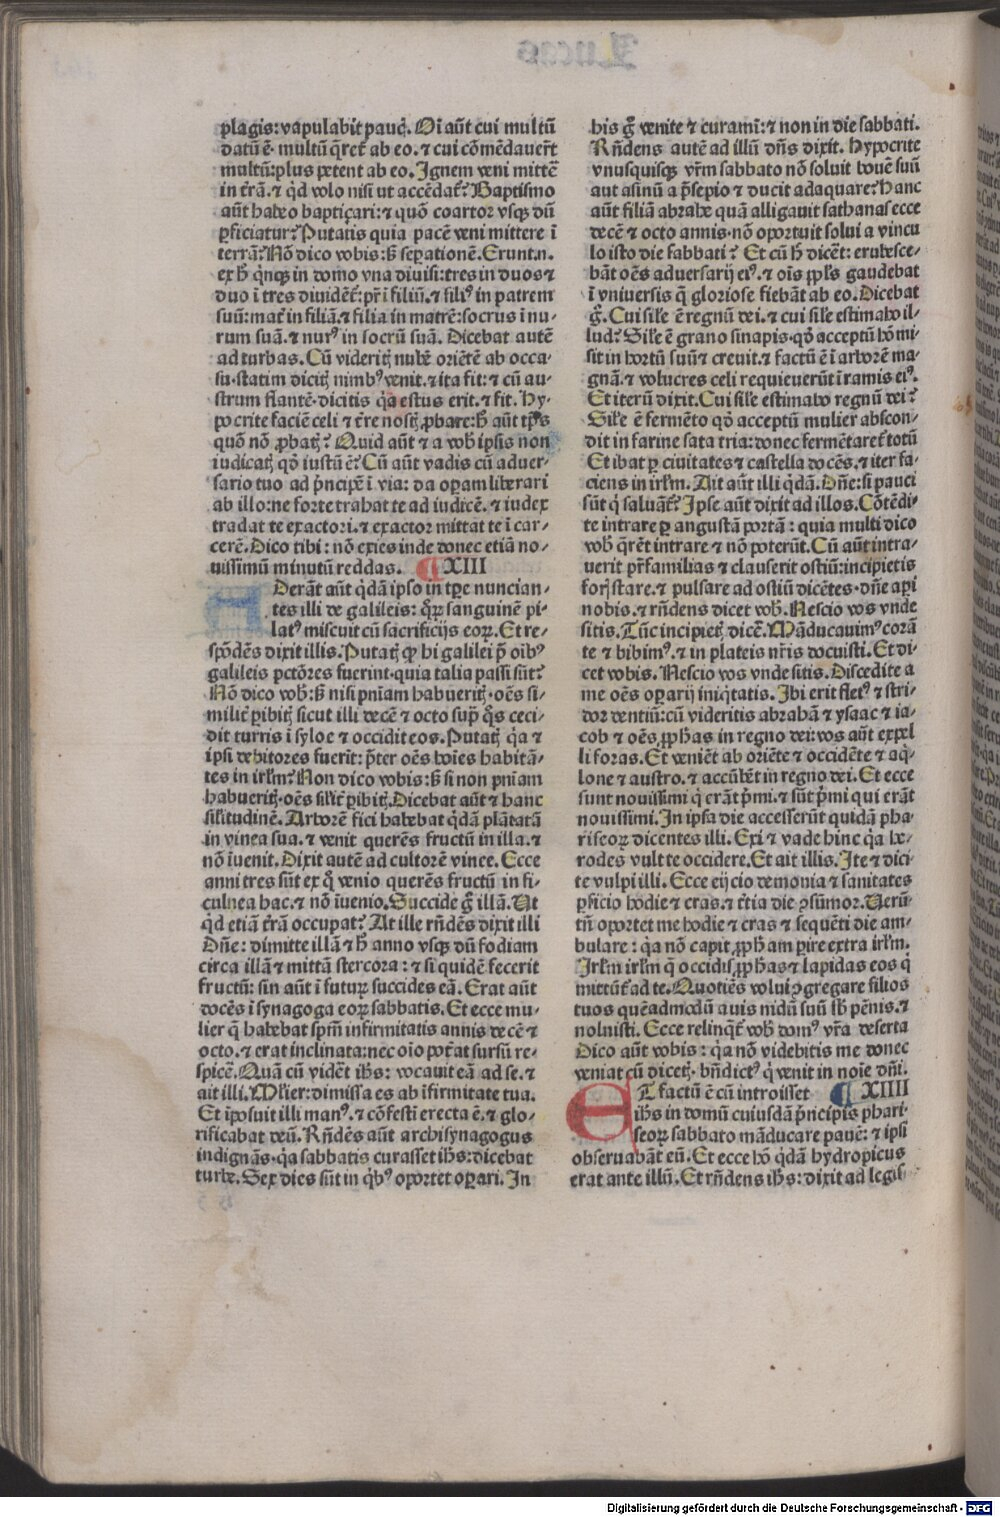 plagis: vapulabit paucꝭ. Oī aūt cui multū
datū ē· multū q̄ret᷑ ab eo. ⁊ cui cōmēdauer̄t
multū: plus petent ab eo. Ignem veni mittē
in t̄rā. ⁊ qd volo nisi ut accēdat᷑? Baptismo
aūt habeo baptiçari: ⁊ quō coartor vsqꝫ dū
ꝑficiatur? Putatis quia pacē veni mittere ī
terrā? Nō dico vobis: sꝫ seꝑationē. Erunt.n.
ex h̄ qīnqꝫ in domo vna diuisi: tres in duos ⁊
duo ī tres diuidēt᷑: pr̄ ī filiū. ⁊ filiꝰ in patrem
suū: mat᷑ in filiā. ⁊ filia in matrē: socrus ī nu⸗
rum suā. ⁊ nurꝰ in socrū suā. Dicebat autē
ad turbas. Cū videritꝭ nubē oriētē ab occa⸗
su· statim dicitꝭ nimbꝰ venit. ⁊ ita fit: ⁊ cū au⸗
strum flantē· dicitis qa estus erit. ⁊ fit. Hy⸗
pocrite faciē celi ⁊ t̄re nostꝭ ꝓbare: h̄ aūt tp̄s
quō nō ꝓbatꝭ? Quid aūt ⁊ a vob ipsis non
iudicatꝭ qd iustū ē? Cū aūt vadis cū aduer⸗
sario tuo ad pͥncipē ī via: da oꝑam liberari
ab illo: ne forte trahat te ad iudicē. ⁊ iudex
tradat te exactori. ⁊ exactor mittat te ī car⸗
cerē. Dico tibi: nō exies inde donec etiā no⸗
uissimū minutū reddas. ¶ XIII
Aderāt aūt qdā ipso in tꝑe nuncian⸗
tes illi de galileis: qꝝ sanguinē pi⸗
latꝰ miscuit cū sacrificijs eoꝝ. Et re⸗
spōdēs dixit illis. Putatꝭ ꝙ hi galilei p̄ oībꝰ
galileis pctōres fuerint· quia talia passi sūt?
Nō dico vob: sꝫ nisi pn̄iam habueritꝭ· oēs si⸗
milit᷑ ꝑibitꝭ sicut illi decē ⁊ octo sup̄ qͦs ceci⸗
dit turris ī syloe ⁊ occidit eos. Putatꝭ qa ⁊
ipsi debitores fuerīt: p̄ter oēs hoīes habitā⸗
tes in irlm̄? Non dico vobis: sꝫ si non pn̄iam
habueritꝭ· oēs silit᷑ ꝑibitꝭ. Dicebat aūt ⁊ hanc
silitudinē. Arborē fici habebat qdā plātatā
in vinea sua. ⁊ venit querēs fructū in illa. ⁊
nō īuenit. Dixit autē ad cultorē vinee. Ecce
anni tres sūt ex qͦ venio querēs fructū in fi⸗
culnea hac. ⁊ nō īuenio. Succide gͦ illā. Ut
qd etiā t̄rā occupat? At ille rn̄dēs dixit illi
Dn̄e: dimitte illā ⁊ h̄ anno vsqꝫ dū fodiam
circa illā ⁊ mittā stercora: ⁊ si quidē fecerit
fructū: sin aūt ī futuꝝ succides eā. Erat aūt
docēs ī synagoga eoꝝ sabbatis. Et ecce mu⸗
lier q̄ habebat spm̄ infirmitatis annis decē ⁊
octo. ⁊ erat inclinata: nec oīo pot᷑at sursū re⸗
spicē. Quā cū vidēt ih̄s: vocauit eā ad se. ⁊
ait illi. Mlier: dimissa es ab īfirmitate tua.
Et īposuit illi manꝰ. ⁊ cōfesti erecta ē. ⁊ glo⸗
rificabat deū. Rn̄dēs aūt archisynagogus
indignās· qa sabbatis curasset ih̄s: dicebat
turbe. Sex dies sūt in qbꝰ oportet oꝑari. In
his gͦ venite ⁊ curamī: ⁊ non in die sabbati.
Rn̄dens autē ad illū dn̄s dixit. Hypocrite
vnusquisqꝫ vr̄m sabbato nō soluit bouē suū
aut asinū a p̄sepio ⁊ ducit adaquare? Hanc
aūt filiā abrahe quā alligauit sathanas ecce
decē ⁊ octo annis· nō oportuit solui a vincu
lo isto die sabbati? Et cū h̄ dicēt: erubesce⸗
bāt oēs aduersarij eiꝰ. ⁊ oīs ppl̄s gaudebat
ī vniuersis q̄ gloriose fiebāt ab eo. Dicebat
gͦ. Cui sile ē regnū dei. ⁊ cui sile estimabo il⸗
lud? Sile ē grano sinapis· qd acceptū hō mi⸗
sit in hortū suū ⁊ creuit. ⁊ factū ē ī arborē ma⸗
gnā. ⁊ volucres celi requieuerūt ī ramis eiꝰ.
Et iterū dixit. Cui sile estimabo regnū dei?
Sile ē fermēto qd acceptū mulier abscon⸗
dit in farine sata tria: donec fermētaret᷑ totū
Et ibat ꝑ ciuitates ⁊ castella docēs. ⁊ iter fa⸗
ciens in irlm̄. Ait aūt illi qdā. Dn̄e: si pauci
sūt q saluāt᷑? Ipse aūt dixit ad illos. Cōtēdi⸗
te intrare ꝑ angustā portā: quia multi dico
vob q̄rēt intrare ⁊ nō poterūt. Cū aūt intra⸗
uerit pr̄familias ⁊ clauserit ostiū: incipietis
forꝭ stare. ⁊ pulsare ad ostiū dicētes· dn̄e aꝑi
nobis. ⁊ rn̄dens dicet vob. Nescio vos vnde
sitis. Tūc incipietꝭ dicē. Māducauimꝰ corā
te ⁊ bibimꝰ. ⁊ in plateis nr̄is docuisti. Et di⸗
cet vobis. Nescio vos vnde sitis. Discedite a
me oēs oꝑarij iniqtatis. Ibi erit fletꝰ ⁊ stri⸗
dor dentiū: cū videritis abrahā ⁊ ysaac ⁊ ia⸗
cob ⁊ oēs ꝓphas in regno dei: vos aūt expel
li foras. Et veniēt ab oriēte ⁊ occidēte ⁊ aq⸗
lone ⁊ austro. ⁊ accūbēt in regno dei. Et ecce
sunt nouissimi q erāt pͥmi. ⁊ sūt pͥmi qui erāt
nouissimi. In ipsa die accesserūt quidā pha⸗
riseoꝝ dicentes illi. Exi ⁊ vade hinc qa he⸗
rodes vult te occidere. Et ait illis. Ite ⁊ dici⸗
te vulpi illi. Ecce eijcio demonia ⁊ sanitates
ꝑficio hodie ⁊ cras. ⁊ t̄tia die ꝯsūmor. Uerū⸗
tn̄ oportet me hodie ⁊ cras ⁊ sequēti die am⸗
bulare: qa nō capit ꝓpham ꝑire extra irlm̄.
Irlm̄ irlm̄ q̄ occidis ꝓphas ⁊ lapidas eos q
mittūt᷑ ad te. Quotiēs volui ꝯgregare filios
tuos quēadmodū auis nidū suū sb pēnis. ⁊
noluisti. Ecce relinqt᷑ vob domꝰ vr̄a deserta
Dico aūt vobis: qa nō videbitis me donec
veniat cū dicetꝭ. bn̄dictꝰ q venit in noīe dn̄i.
ET factū ē cū introisset ¶ XIIII
ih̄s in domū cuiusdā pͥncipis phari⸗
seoꝝ sabbato māducare panē: ⁊ ipsi
obseruabāt eū. Et ecce hō qdā hydropicus
erat ante illū. Et rn̄dens ih̄s: dixit ad legis⸗
Digitalisierung gefördert durch die Deutsche Forschungsgemeinschaft - DFG